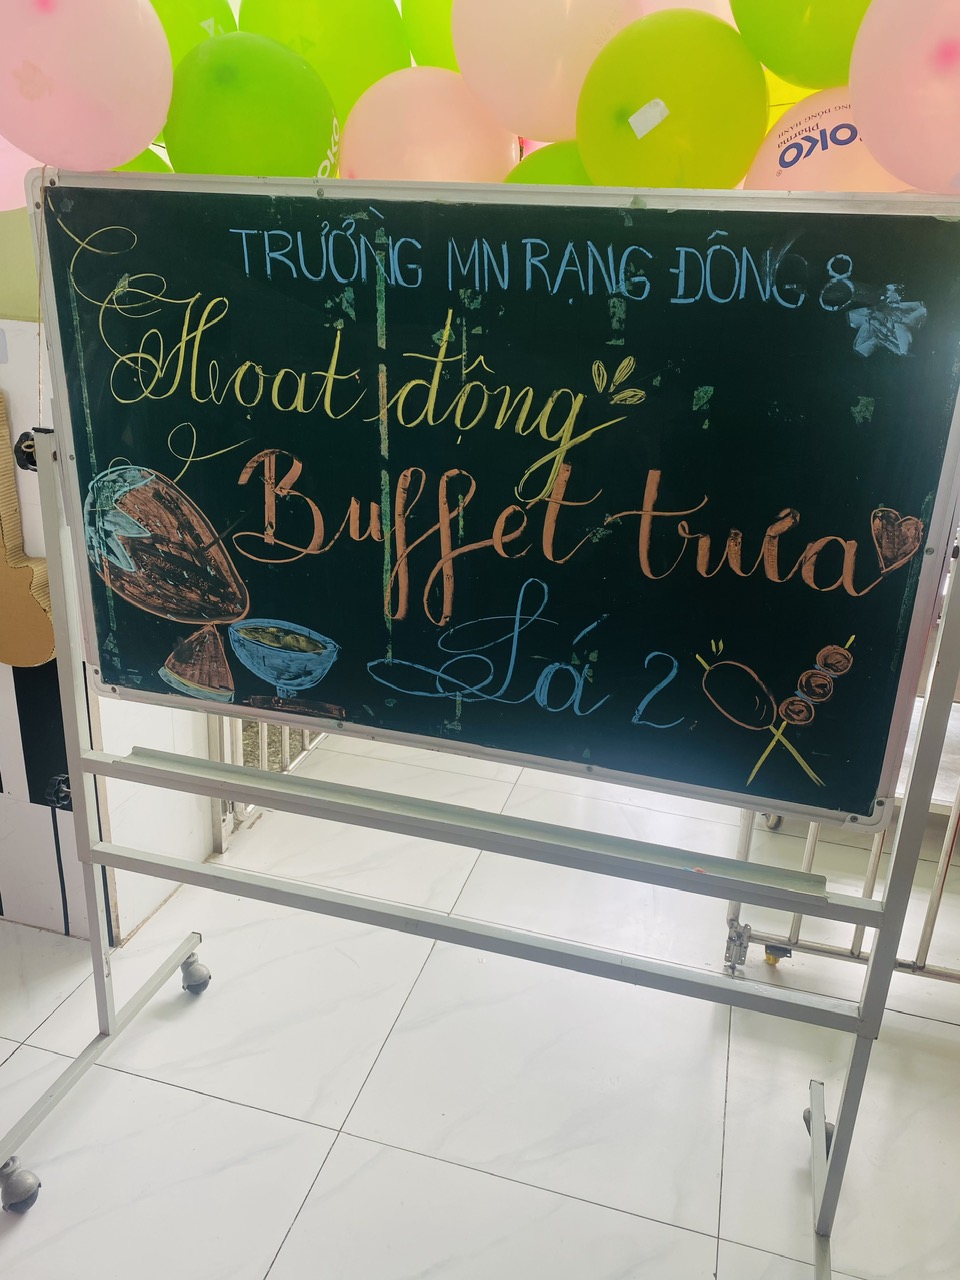 OKO
OKO
pharma
TRƯỜNG MN RẠNG ĐÔNG 8
Hoạt động
Buffet trưa
Lá 2